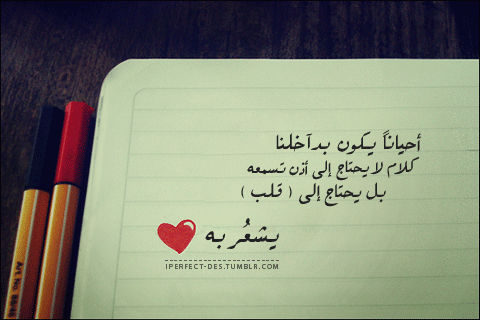 أحياناً يكون بدآخلنا
كلام لا يحتاج إلى أذن تسمعه
بل يحتاج إلى ( قلب )
يشعُر به
IPERFECT-DES.TUMBLR.COM
Art.No. 88/46